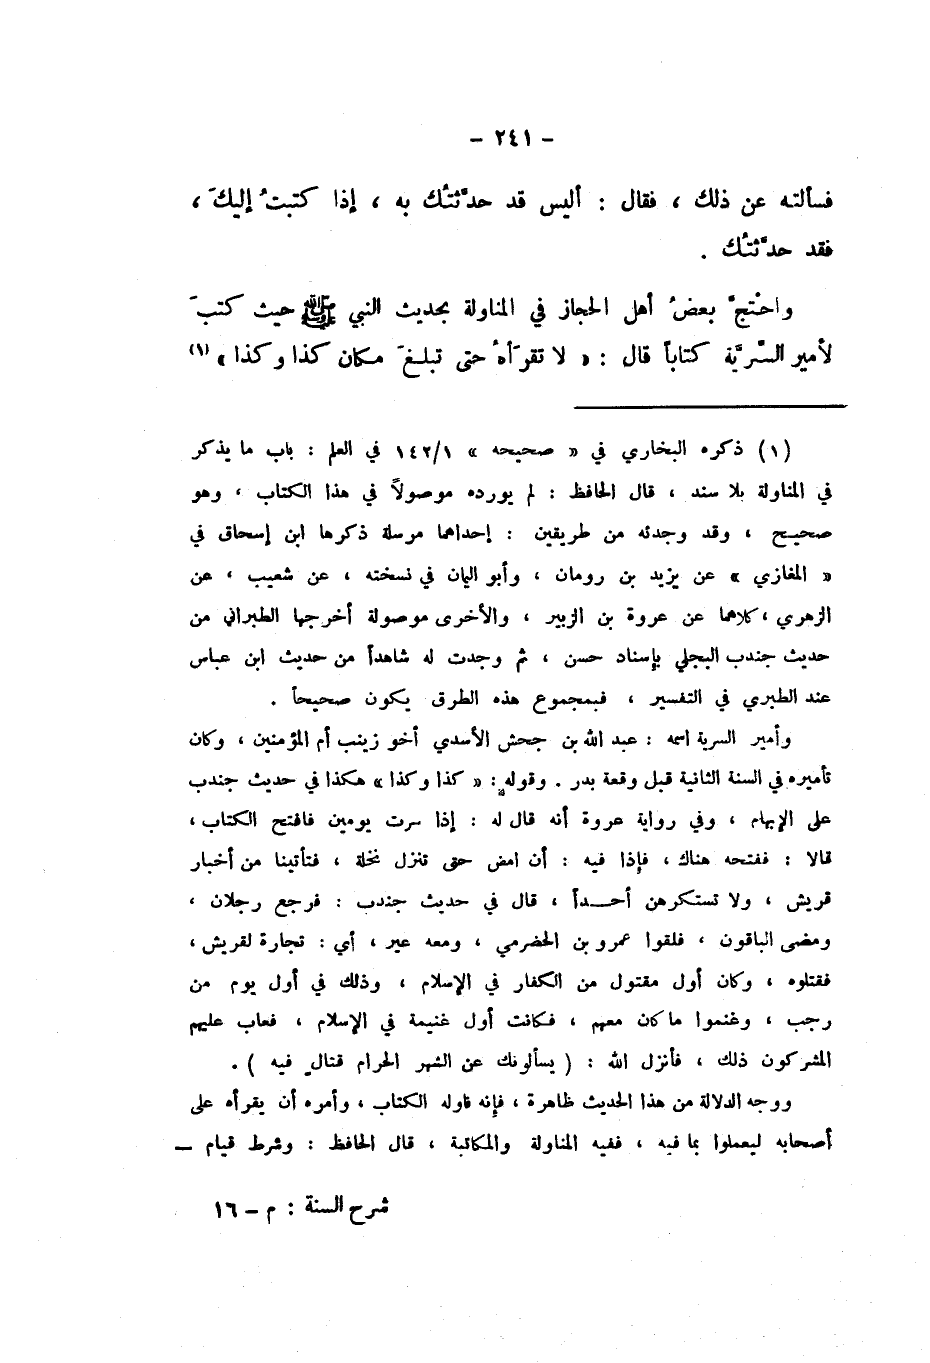 - ٢٤١ -
فسألته عن ذلك ، فقال : أليس قد حدَّثتُك به ، إذا كتبتُ إليكَ ،
فقد حدَّثتُك .
واحْتجَّ بعضُ أهل الحجاز في المناولة بحديث النبي ﷺ حيث كتبَ
لأمير السَّريَّة كتاباً قال : « لا تقرَأهُ حتى تبلغَ مكان كذا وكذا » (١)
(١) ذكره البخاري في « صحيحه » ١٤٢/١ في العلم : باب ما يذكر
في المناولة بلا سند ، قال الحافظ : لم يورده موصولاً في هذا الكتاب ، وهو
صحيح ، وقد وجدته من طريقين : إحداهما مرسلة ذكرها ابن إسحاق في
« المغازي » عن يزيد بن رومان ، وأبو اليمان في نسخته ، عن شعيب ، عن
الزهري ، كلاهما عن عروة بن الزبير ، والأخرى موصولة أخرجها الطبراني من
حديث جندب البجلي بإسناد حسن ، ثم وجدت له شاهداً من حديث ابن عباس
عند الطبري في التفسير ، فبمجموع هذه الطرق يكون صحيحاً .
وأمير السرية اسمه : عبد الله بن جحش الأسدي أخو زينب أم المؤمنين ، وكان
تأميره في السنة الثانية قبل وقعة بدر . وقوله : « كذا وكذا » هكذا في حديث جندب
على الإبهام ، وفي رواية عروة أنه قال له : إذا سرت يومين فافتح الكتاب ،
قالا : ففتحه هناك ، فإذا فيه : أن امض حتى تنزل نخلة ، فتأتينا من أخبار
قريش ، ولا تستكرهن أحداً ، قال في حديث جندب : فرجع رجلان ،
ومضى الباقون ، فلقوا عمرو بن الحضرمي ، ومعه عير ، أي : تجارة لقريش ،
فقتلوه ، وكان أول مقتول من الكفار في الإسلام ، وذلك في أول يوم من
رجب ، وغنموا ما كان معهم ، فكانت أول غنيمة في الإسلام ، فعاب عليهم
المشركون ذلك ، فأنزل الله : ( يسألونك عن الشهر الحرام قتالٍ فيه ) .
ووجه الدلالة من هذا الحديث ظاهرة ، فإنه ناوله الكتاب ، وأمره أن يقرأه على
أصحابه ليعملوا بما فيه ، ففيه المناولة والمكاتبة ، قال الحافظ : وشرط قيام ــ
شرح السنة : م - ١٦